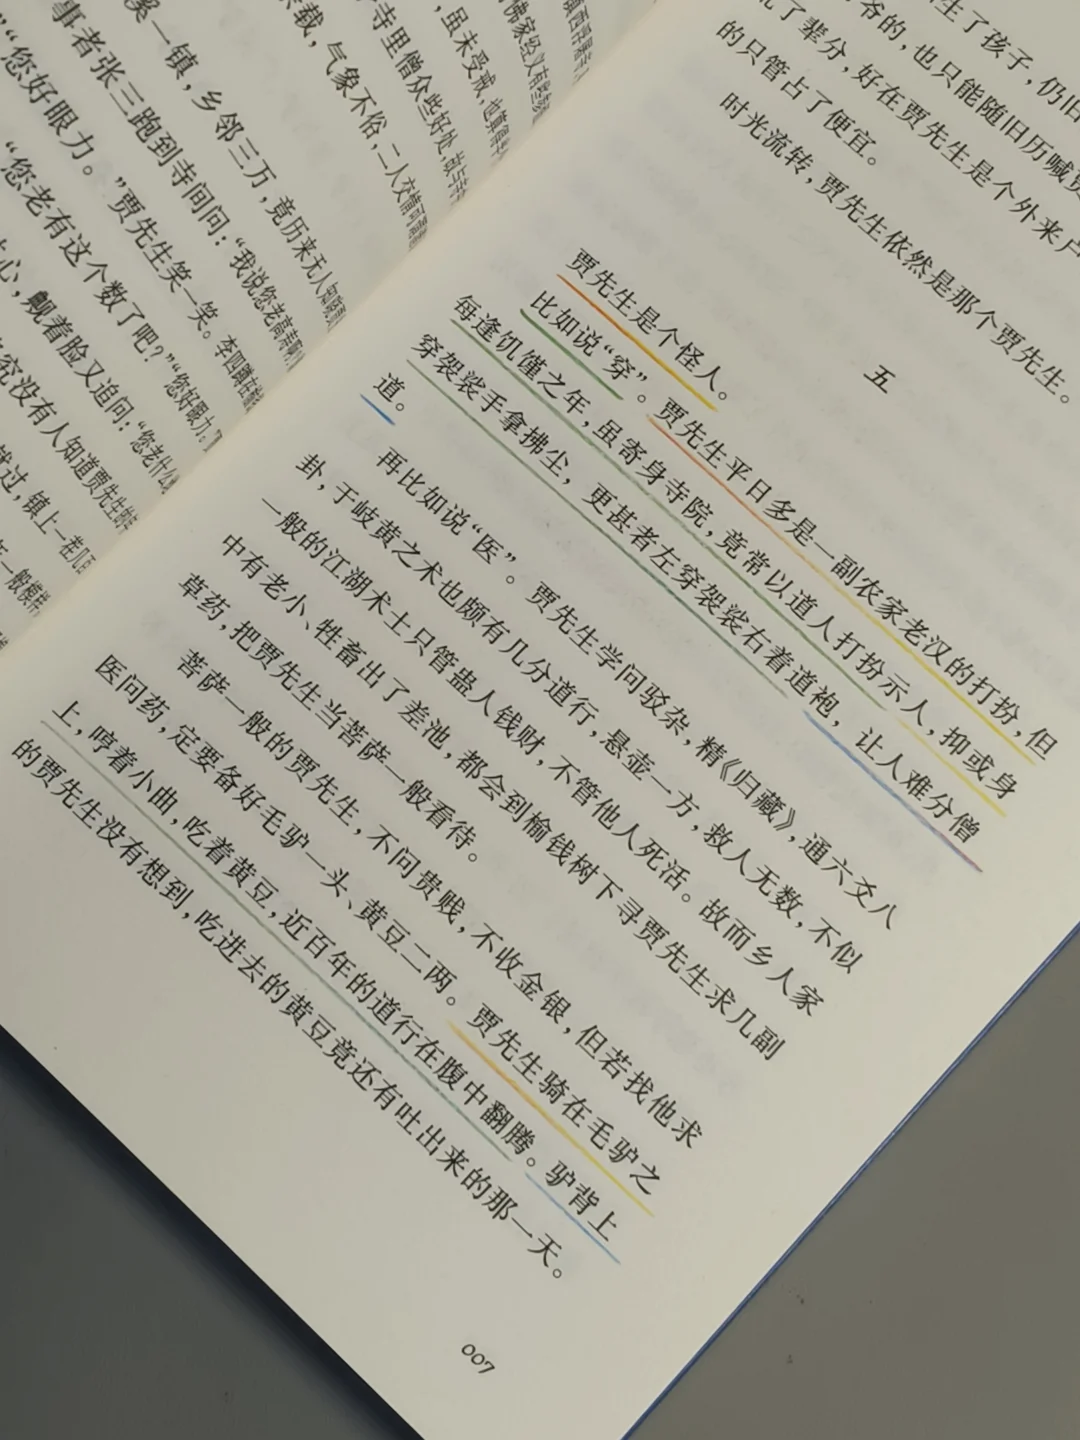 佛家经义有些
，虽未受戒，也算
寺里僧众些好处，故与
载，气象不俗，二人交情
溪一镇，乡邻三万，竟历来无人知晓
事者张三跑到寺问：“我说您老高寿
“您好眼力。”贾先生笑一笑。李四蹲在
“您老有这个数了吧？”“您好眼力。”
心，觍着脸又追问：“您老什么
究没有人知道贾先生的年
就过，镇上一茬几百
一般模样
生了孩子，仍旧
爷的，也只能随旧历喊贾
了辈分，好在贾先生是个外来户
的只管占了便宜。
时光流转，贾先生依然是那个贾先生。
五
贾先生是个怪人。
比如说“穿”。贾先生平日多是一副农家老汉的打扮，但
每逢饥馑之年，虽寄身寺院，竟常以道人打扮示人，抑或身
穿袈裟手拿拂尘，更甚者左穿袈裟右着道袍，让人难分僧
道。
再比如说“医”。贾先生学问驳杂，精《归藏》，通六爻八
卦，于岐黄之术也颇有几分道行，悬壶一方，救人无数，不似
一般的江湖术士只管蛊人钱财，不管他人死活。故而乡人家
中有老小、牲畜出了差池，都会到榆钱树下寻贾先生求几副
草药，把贾先生当菩萨一般看待。
菩萨一般的贾先生，不问贵贱，不收金银，但若找他求
医问药，定要备好毛驴一头、黄豆二两。贾先生骑在毛驴之
上，哼着小曲，吃着黄豆，近百年的道行在腹中翻腾。驴背上
的贾先生没有想到，吃进去的黄豆竟还有吐出来的那一天。
007